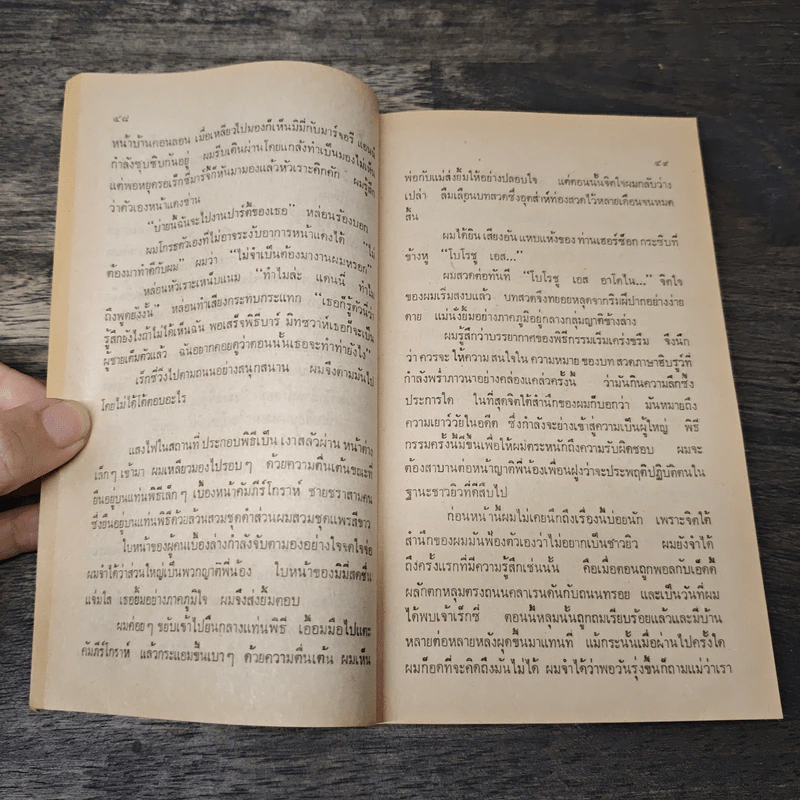 ๔๘
หน้าบ้านคอนลอน เมื่อเหลียวไปมองก็เห็นมิมี่กับมาร์จอรี แฮนน
กำลังซุบซิบกันอยู่ ผมรีบเดินผ่านโดยแกล้งทำเป็นมองไม่เห็น
แต่พอหยุดรอเร็กซี่มาร์จี้ก็หันมามองแล้วหัวเราะคิกคัก ผมรู้สึก
ว่าตัวเองหน้าแดงซ่าน
“บ่ายนี้ฉันจะไปงานปาร์ตี้ของเธอ” หล่อนร้องบอก
ผมโกรธตัวเองที่ไม่อาจระงับอาการหน้าแดงได้ “ไม่
ต้องมาทำดีกับผม” ผมว่า “ไม่จำเป็นต้องมางานผมหรอก”
หล่อนหัวเราะเหน็บแนม “ทำไมล่ะ แดนนี่ ทำไม
ถึงพูดยังงั้น” หล่อนทำเสียงกระทบกระแทก “เธอก็รู้ตัวนี่ว่า
รู้สึกยังไงถ้าไม่ได้เห็นฉัน พอเสร็จพิธีบาร์ มิทซวาห์เธอก็จะเป็น
ผู้ชายเต็มตัวแล้ว ฉันอยากคอยดูว่าตอนนั้นเธอจะทำท่ายังไง”
เร็กซี่วิ่งไปตามถนนอย่างสนุกสนาน ผมจึงตามมันไป
โดยไม่ได้โต้ตอบอะไร
แสงไฟในสถานที่ประกอบพิธีเป็นเงาสลัวผ่านหน้าต่าง
เล็กๆ เข้ามา ผมเหลียวมองไปรอบๆ ด้วยความตื่นเต้นขณะที่
ยืนอยู่บนแท่นพิธีเล็กๆ เบื้องหน้าคัมภีร์โกราห์ ชายชราสามคน
ซึ่งยืนอยู่บนแท่นพิธีด้วยล้วนสวมชุดดำส่วนผมสวมชุดแพรสีขาว
ใบหน้าของผู้คนเบื้องล่างกำลังจับตามองอย่างใจจดใจจ่อ
ผมจำได้ว่าส่วนใหญ่เป็นพวกญาติพี่น้อง ใบหน้าของมิมี่สดชื่น
แจ่มใส เธอยิ้มอย่างภาคภูมิใจ ผมจึงส่งยิ้มตอบ
ผมค่อยๆ ขยับเข้าไปยืนกลางแท่นพิธี เอื้อมมือไปแตะ
คัมภีร์โกราห์ แล้วกระแอมขึ้นเบาๆ ด้วยความตื่นเต้น ผมเห็น
๔๙
พ่อกับแม่ส่งยิ้มให้อย่างปลอบใจ แต่ตอนนั้นจิตใจผมกลับว่าง
เปล่า ลืมเลือนบทสวดซึ่งอุตส่าห์ท่องสวดไว้หลายเดือนจนหมด
สิ้น
ผมได้ยินเสียงอันแหบแห้งของท่านเฮอร์ซ็อกกระซิบที่
ข้างหู “โบโรชู เอส...”
ผมสวดต่อทันที “โบโรชู เอส อาโดไน...” จิตใจ
ของผมเริ่มสงบแล้ว บทสวดจึงทยอยหลุดจากริมฝีปากอย่างง่าย
ดาย แม่นั่งยิ้มอย่างภาคภูมิอยู่กลางกลุ่มญาติข้างล่าง
ผมรู้สึกว่าบรรยากาศของพิธีกรรมเริ่มเคร่งขรึม จึงนึก
ว่าควรจะให้ความสนใจในความหมายของบทสวดภาษาฮิบรูว์ที่
กำลังพร่ำภาวนาอย่างคล่องแคล่วครั้งนี้ ว่ามันกินความลึกซึ้ง
ประการใด ในที่สุดจิตใต้สำนึกของผมก็บอกว่า มันหมายถึง
ความเยาว์วัยในอดีต ซึ่งกำลังจะย่างเข้าสู่ความเป็นผู้ใหญ่ พิธี
กรรมครั้งนี้มีขึ้นเพื่อให้ผมตระหนักถึงความรับผิดชอบ ผมจะ
ต้องสาบานต่อหน้าญาติพี่น้องเพื่อนฝูงว่าจะประพฤติปฏิบัติตนใน
ฐานะชาวยิวที่ดีสืบไป
ก่อนหน้านี้ผมไม่เคยนึกถึงเรื่องนี้บ่อยนัก เพราะจิตใต้
สำนึกของผมมันฟ้องตัวเองว่าไม่อยากเป็นชาวยิว ผมยังจำได้
ถึงครั้งแรกที่มีความรู้สึกเช่นนั้น คือเมื่อตอนถูกพอลกับเอ็ดดี้
ผลักตกหลุมตรงถนนคลาเรนดันกับถนนทรอย และเป็นวันที่ผม
ได้พบเจ้าเร็กซี่ ตอนนี้หลุมนั้นถูกถมเรียบร้อยแล้วและมีบ้าน
หลายต่อหลายหลังผุดขึ้นมาแทนที่ แม้กระนั้นเมื่อผ่านไปครั้งใด
ผมก็อดที่จะคิดถึงมันไม่ได้ ผมจำได้ว่าพอวันรุ่งขึ้นก็ถามแม่ว่าเรา